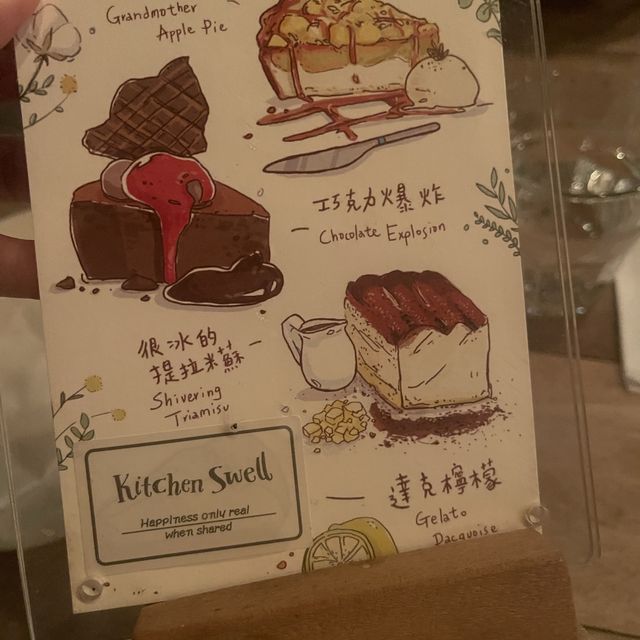 Grandmother
Apple Pie
巧克力爆炸
Chocolate Explosion
很冰的
提拉米蘇
Shivering
Triamisu
Kitchen Swell
Happiness only real
when shared
達克檸檬
Gelato
Dacquoise